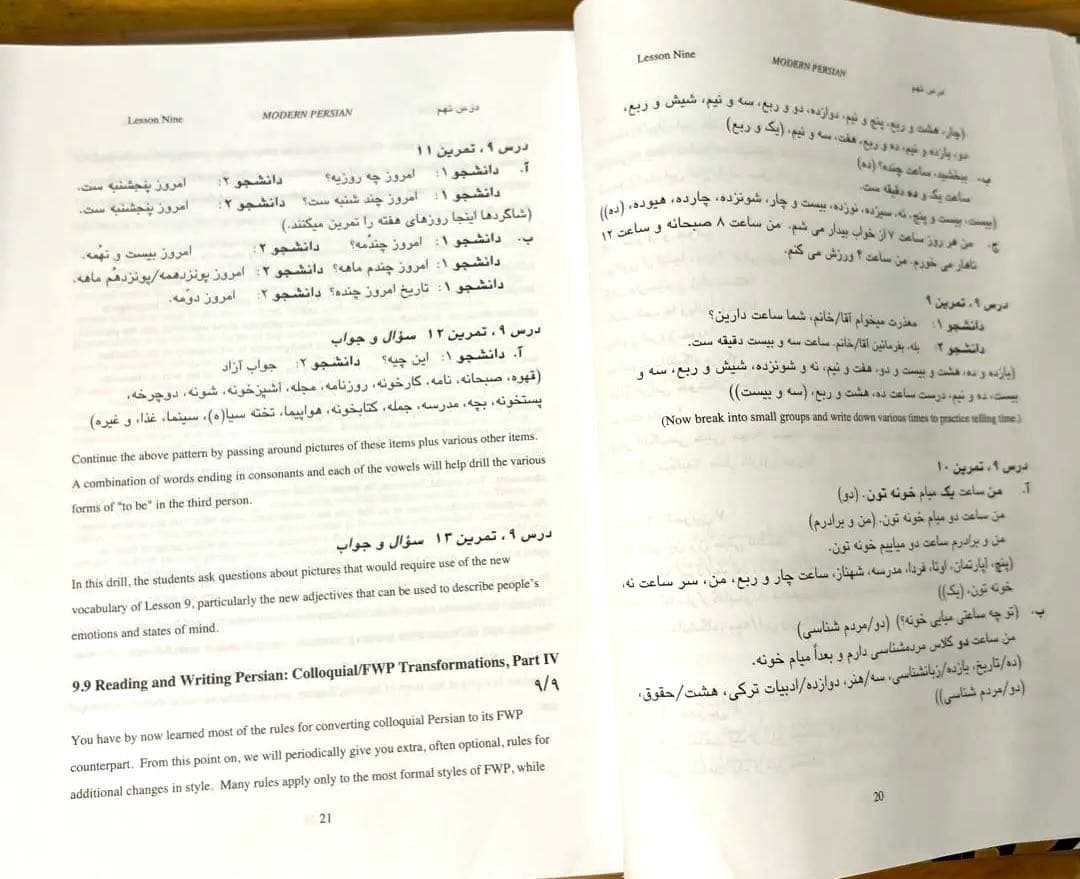 Lesson Nine MODERN PERSIAN درس نهم
(چار، هشت و ربع، پنج و نیم، دوازده، دو و ربع، سه و نیم، شیش و ربع،
دو، یازده و نیم، ده و ربع، هفت، سه و نیم، (یک و ربع)
ب. ببخشید، ساعت چنده؟ (ده)
ساعت یک و ده دقیقه ست.
(بیست، بیست و پنج، نه، سیزده، نوزده، بیست و چار، شونزده، چارده، هیوده، (ده))
ج. من هر روز ساعت ۷ از خواب بیدار می شم. من ساعت ۸ صبحانه و ساعت ۱۲
ناهار می خورم. من ساعت ۴ ورزش می کنم.
درس ۹، تمرین ۹
دانشجو ۱: معذرت میخوام آقا/خانم، شما ساعت دارین؟
دانشجو ۲: بله، بفرمائین آقا/خانم. ساعت سه و بیست دقیقه ست.
(یازده و ده، هشت و بیست و دو، هفت و نیم، نه و شونزده، شیش و ربع، سه و
بیست، ده و نیم، درست ساعت ده، هشت و ربع، (سه و بیست))
(Now break into small groups and write down various times to practice telling time.)
درس ۹، تمرین ۱۰
آ. من ساعت یک میام خونه تون. (دو)
من ساعت دو میام خونه تون. (من و برادرم)
من و برادرم ساعت دو میاییم خونه تون.
(پنج، اپارتمان، اونا، فردا، مدرسه، شهناز، ساعت چار و ربع، من، سر ساعت نه،
خونه تون، (یک))
ب. (تو چه ساعتی میایی خونه؟) (دو/مردم شناسی)
من ساعت دو کلاس مردمشناسی دارم و بعداً میام خونه.
(ده/تاریخ، یازده/زبانشناسی، سه/هنر، دوازده/ادبیات ترکی، هشت/حقوق،
(دو/مردم شناسی))
20
Lesson Nine MODERN PERSIAN درس نهم
درس ۹، تمرین ۱۱
آ. دانشجو ۱: امروز چه روزیه؟ دانشجو ۲: امروز پنجشنبه ست.
دانشجو ۱: امروز چند شنبه ست؟ دانشجو ۲: امروز پنجشنبه ست.
(شاگردها اینجا روزهای هفته را تمرین میکنند.)
ب. دانشجو ۱: امروز چندُمه؟ دانشجو ۲: امروز بیست و نهُمه.
دانشجو ۱: امروز چندم ماهه؟ دانشجو ۲: امروز پونزدهمه/پونزدهُم ماهه.
دانشجو ۱: تاریخ امروز چنده؟ دانشجو ۲: امروز دوّمه.
درس ۹، تمرین ۱۲ سؤال و جواب
آ. دانشجو ۱: این چیه؟ دانشجو ۲: جواب آزاد
(قهوه، صبحانه، نامه، کارخونه، روزنامه، مجله، آشپزخونه، شونه، دوچرخه،
پستخونه، بچه، مدرسه، جمله، کتابخونه، هواپیما، تخته سیا(ه)، سینما، غذا، و غیره)
Continue the above pattern by passing around pictures of these items plus various other items.
A combination of words ending in consonants and each of the vowels will help drill the various
forms of "to be" in the third person.
درس ۹، تمرین ۱۳ سؤال و جواب
In this drill, the students ask questions about pictures that would require use of the new
vocabulary of Lesson 9, particularly the new adjectives that can be used to describe people's
emotions and states of mind.
9.9 Reading and Writing Persian: Colloquial/FWP Transformations, Part IV
۹/۹
You have by now learned most of the rules for converting colloquial Persian to its FWP
counterpart. From this point on, we will periodically give you extra, often optional, rules for
additional changes in style. Many rules apply only to the most formal styles of FWP, while
21